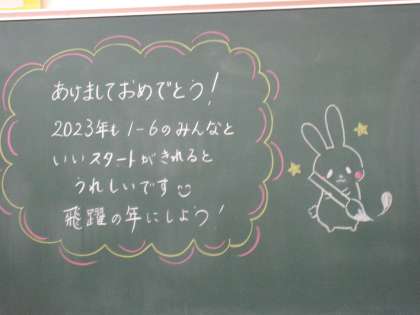 あけましておめでとう!
2023年も1-6のみんなと
いいスタートがきれると
うれしいです
飛躍の年にしよう!